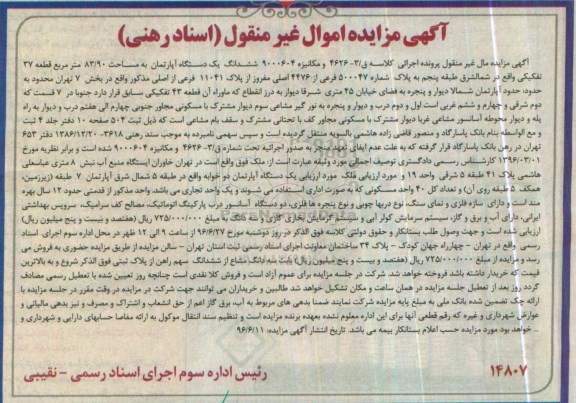 آگهی مزایده اموال غیر منقول (اسناد رهنی)
آگهی مزایده مال غیر منقول پرونده اجرائی کلاسه ق/۳- ۴۶۲۶ و مکانیزه ۹۰۰۰۶۰۴ ششدانگ یک دستگاه آپارتمان به مساحت ۸۳/۹۰ متر مربع قطعه ۲۷
تفکیکی واقع در شمالشرق طبقه پنجم به پلاک شماره ۵۰۰۰۴۷ فرعی از ۴۴۷۶ اصلی مفروز از پلاک ۱۱۰۴۱ فرعی از اصلی مذکور واقع در بخش ۷ تهران محدود به
حدود: حدود آپارتمان شمالا دیوار و پنجره به فضای خیابان ۴۵ متری شرقا دیوار به درز انقطاع که ماوراء آن قطعه ۴۳ تفکیکی سابق قرار دارد جنوبا در ۷ قسمت که
دوم شرقی و چهارم و ششم غربی است اول و دوم درب و دیوار و پنجره به نور گیر مشاعی سوم دیوار مشترک با مسکونی مجاور جنوبی چهارم الی هفتم درب و دیوار به راه
پله و دیوار محوطه آسانسور مشاعی غربا دیوار مشترک با مسکونی مجاور کف با تحتانی مشترک و سقف بام مشاعی است که ذیل ثبت ۵۰۴ صفحه ۱۰ دفتر جلد ۴ ثبت
و مع الواسطه بنام بانک پاسارگاد و منصور قاضی زاده هاشمی بالسویه منتقل گردیده است و سپس سهمی نامبرده به موجب سند رهنی ۳۶۱۸- ۱۳۸۶/۱۲/۲۰ دفتر ۶۵۳
تهران در رهن بانک پاسارگاد قرار گرفته که به علت عدم ایفای تعهد منجر به صدور اجرائیه تحت شماره ق/۳- ۴۶۲۶ و مکانیزه ۹۰۰۰۶۰۴ شده است و برابر نظریه مورخ
۱۳۹۶/۰۳/۰۱ کارشناس رسمی دادگستری توصیف اجمالی مورد وثیقه عبارت است از: ملک فوق واقع است در تهران خاوران ایستگاه منبع آب نبش ۸ متری عباسعلی
هاشمی پلاک ۴۱ طبقه ۵ شرقی واحد ۱۹ و مورد ارزیابی ملک مورد ارزیابی یک دستگاه آپارتمان دو خوابه واقع در طبقه ۵ شمال شرق آپارتمان ۷ طبقه (زیرزمین،
همکف ۵ طبقه روی آن) و تعداد کل ۴۰ واحد مسکونی که به صورت اداری استفاده می شوند و یک واحد تجاری می باشد. واحد مذکور از قدمتی حدود ۱۲ سال بهره
مند است و دارای سازه فلزی و نمای سنگ، نوع دربها چوبی و نوع پنجره ها فلزی، دو دستگاه آسانسور درب پارکینگ اتوماتیک، مصالح کف سرامیک، سرویس بهداشتی
ایرانی، دارای آب و برق و گاز، سیستم سرمایش کولر آبی و سیستم گرمایش بخاری گازی مبلغ ۷۲۵/۰۰۰/۰۰۰ ریال (هفتصد و بیست و پنج میلیون ریال)
ارزیابی شده است و جهت وصول طلب بستانکار و حقوق دولتی کلاسه فوق الذکر در روز دوشنبه مورخ ۹۶/۶/۲۷ از ساعت ۹ الی ۱۲ ظهر در محل اداره سوم اجرای اسناد
رسمی واقع در تهران - چهارراه جهان کودک - پلاک ۳۴ ساختمان معاونت اجرای اسناد رسمی ثبت استان تهران - سالن مزایده از طریق مزایده حضوری به فروش می
رسد و مزایده از مبلغ ۷۲۵/۰۰۰/۰۰۰ ریال (هفتصد و بیست و پنج میلیون ریال) بابت سه دانگ مشاع از ششدانگ سهم راهن از پلاک ثبتی فوق الذکر شروع و به بالاترین
قیمت که خریدار داشته باشد فروخته خواهد شد. شرکت در جلسه مزایده برای عموم آزاد است و فروش کلا نقدی است چنانچه روز تعیین شده با تعطیل رسمی مصادف
گردد روز بعد از تعطیل جلسه مزایده در همان ساعت و مکان تشکیل خواهد شد طالبین و خریداران می توانند جهت شرکت در مزایده در وقت مقرر در جلسه مزایده با
ارائه چک تضمین شده بانک ملی به مبلغ پایه مزایده شرکت نمایند ضمنا بدهی های مربوط به آب، برق گاز اعم از حق انشعاب و اشتراک و مصرف و نیز بدهی مالیاتی و
عوارض شهرداری و غیره که رقم قطعی آنها برای این اداره معلوم نشده بعهده برنده مزایده است و تنظیم سند انتقال موکول به ارائه مفاصا حسابهای دارایی و شهرداری و
... خواهد بود مورد مزایده حسب اعلام بستانکار بیمه می باشد. تاریخ انتشار آگهی مزایده: ۹۶/۶/۱۱
۱۴۸۰۷ رئیس اداره سوم اجرای اسناد رسمی - نقیبی